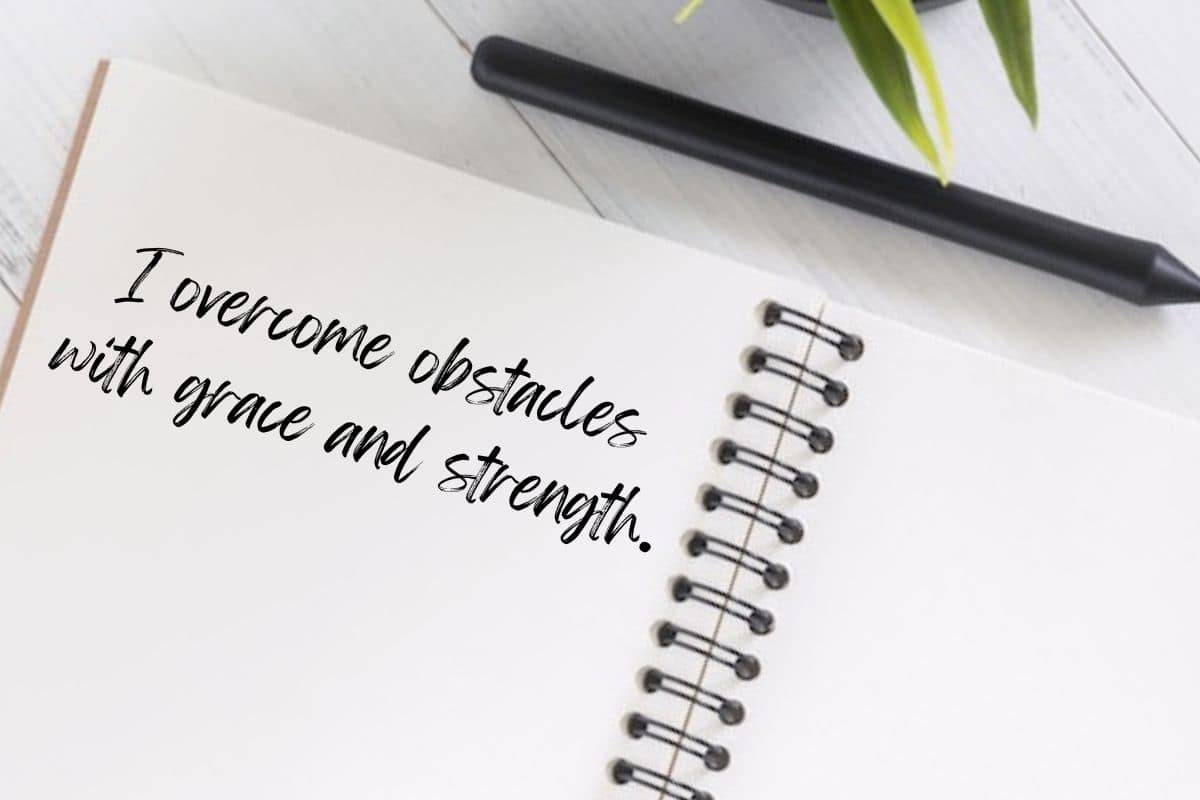 I overcome obstacles
with grace and strength.